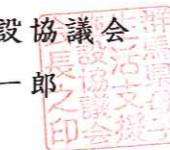 設協議会
一郎
群馬県母子
生活支援施
設協議会
会長之印